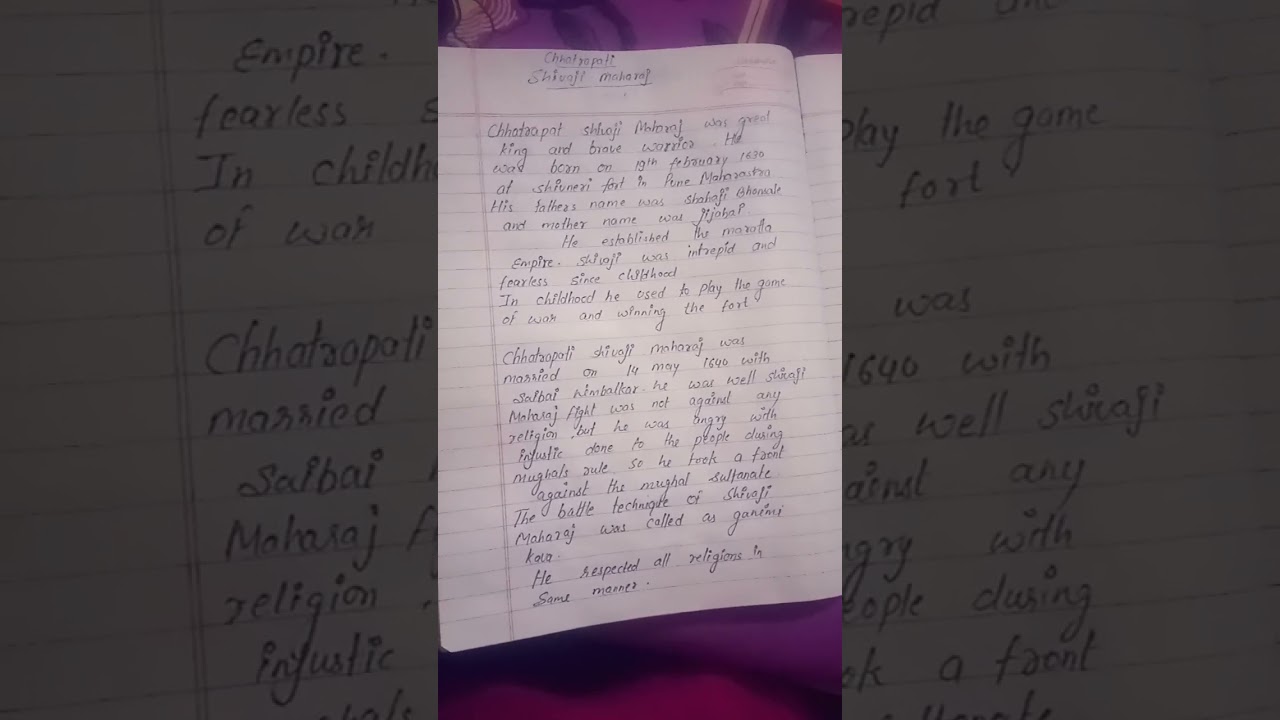 Chhatrapati
Shivaji maharaj
Chhatrapat shivaji Maharaj was great
king and brave warrior. He
was born on 19th february 1630
at shivneri fort in Pune Maharastra
His fathers name was shahaji Bhonsale
and mother name was Jijabai.
He established the maratta
Empire. Shivaji was intrepid and
fearless since
In childhood he used to play the game
of war and winning the fort
Chhatrapati shivaji maharaj was
married on 14 may 1640 with
saibai Nimbalkar. he was well shivaji
Maharaj fight was not against any
religion but he was angry with
injustic done to the people during
mughals rule so he took a front
against the mughal sultanate.
The battle technique of Shivaji
Maharaj was called as ganimi
kava.
He respected all religions in
Same manner.